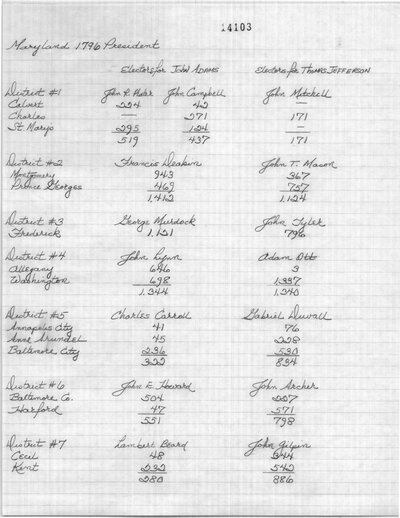 14103
Maryland 1796 President
Electors for JOHN ADAMS Electors for THOMAS JEFFERSON
District #1 John R. Plater John Campbell John Mitchell
Calvert 224 42 —
Charles — 271 171
St. Marys 295 124 —
519 437 171
District #2 Francis Deakins John T. Mason
Montgomery 943 367
Prince Georges 469 757
1,412 1,124
District #3 George Murdock John Tyler
Frederick 1,121 796
District #4 John Lynn Adam Ott
Allegany 646 3
Washington 698 1,337
1,344 1,340
District #5 Charles Carroll Gabriel Duvall
Annapolis City 41 76
Anne Arundel 45 228
Baltimore City 236 530
322 834
District #6 John E. Howard John Archer
Baltimore Co. 504 227
Harford 47 571
551 798
District #7 Lambert Beard John Gilpin
Cecil 48 344
Kent 232 542
280 886